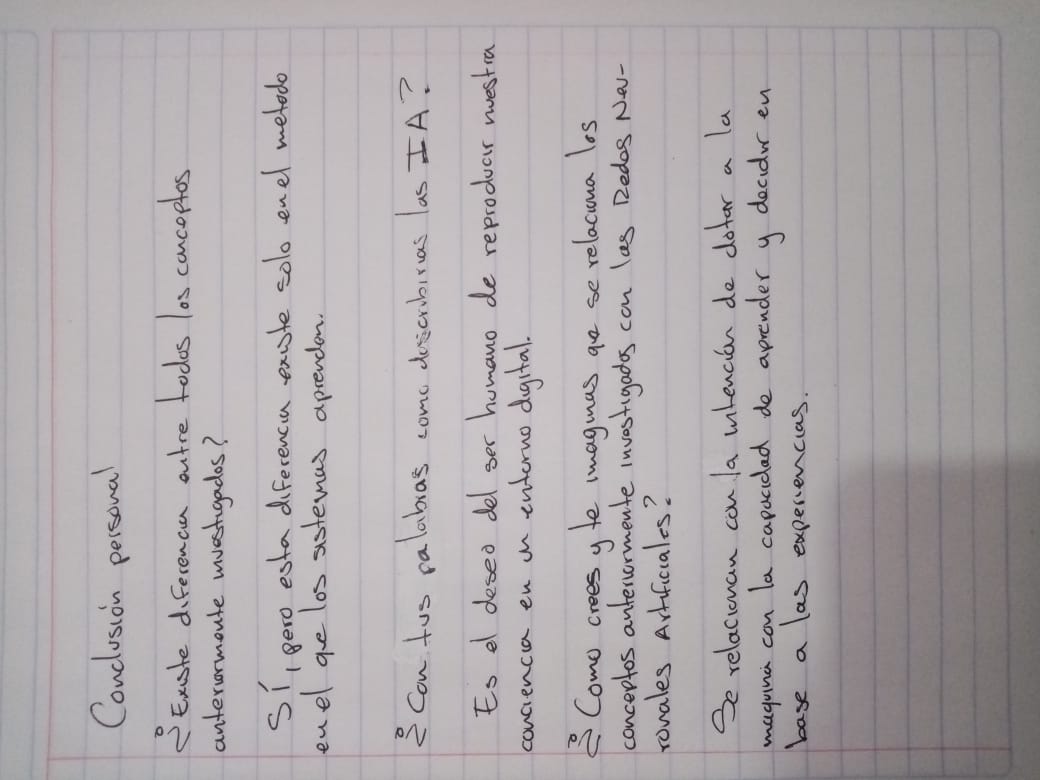 Conclusión personal
¿Existe diferencia entre todos los conceptos
anteriormente investigados?
Sí, pero esta diferencia existe solo en el metodo
en el que los sistemas aprenden.
¿Con tus palabras como describirias las IA?
Es el deseo del ser humano de reproducir nuestra
conciencia en un entorno digital.
¿Como crees y te imaginas que se relaciona los
conceptos anteriormente investigados con las Redes Neu-
ronales Artificiales?
Se relacionan con la intención de dotar a la
maquina con la capacidad de aprender y decidir en
base a las experiencias.